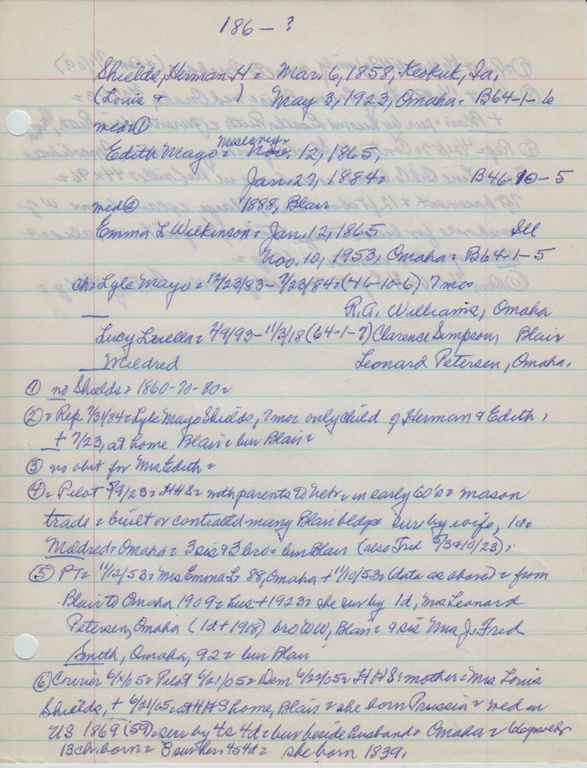 186-?
Shields, Herman H = Mar. 6, 1858, Keokuk, Ia,
(Louis &          ) May 3, 1923, Omaha = B64-1-6
med ①
Edith Mayo = Nov. 12, 1865,
Jan. 27, 1884 =          B46-10-5
med ②          1888, Blair
Emma L Wilkinson = Jan. 12, 1865          Ill
Nov. 10, 1953, Omaha = B64-1-5
ch = Lyle Mayo = 12/23/83 - 7/23/84 = (46-10-6) 7 mos
R.A. Williams, Omaha
Lucy Luella = 2/9/93 - 11/3/18 (64-1-7) Clarence Simpson, Blair
Mildred          Leonard Petersen, Omaha.
① no Shields = 1860-70-80 =
② = Rep 7/31/84 = Lyle Mayo Shields, 7 mos only child of Herman & Edith,
+ 7/23, at home Blair = bur Blair =
③ no obit for Mrs Edith =
④ = Pilot 5/9/23 = HHS = with parents to Nebr = in early 60's = mason
trade = built or contracted many Blair bldgs sur by wife, 1d =
Mildred = Omaha = 3 sis & 3 bro = bur Blair (also Trib 5/3 & 10/23) =
⑤ PT = 11/12/53 = Mrs Emma L = 88, Omaha + 11/10/53 = (data as above) = from
Blair to Omaha 1909 = hus + 1923 = she sur by 1d, Mrs Leonard
Petersen, Omaha (1d + 1918) bro WW, Blair = 9 sis Mrs J. Fred
Smith, Omaha, 92 = bur Blair
⑥ Courier 6/ /05 = Pilot 6/21/05 = Dem 6/22/05 = HHS = mother = Mrs Louis
Shields, + 6/21/05 = at HHS home, Blair = she born Prussia = med in
US 1869 (59) = sur by 4s 4d = bur beside husband = Omaha =
13 ch. born = 8 sur her. 4s 4d = she born 1839.